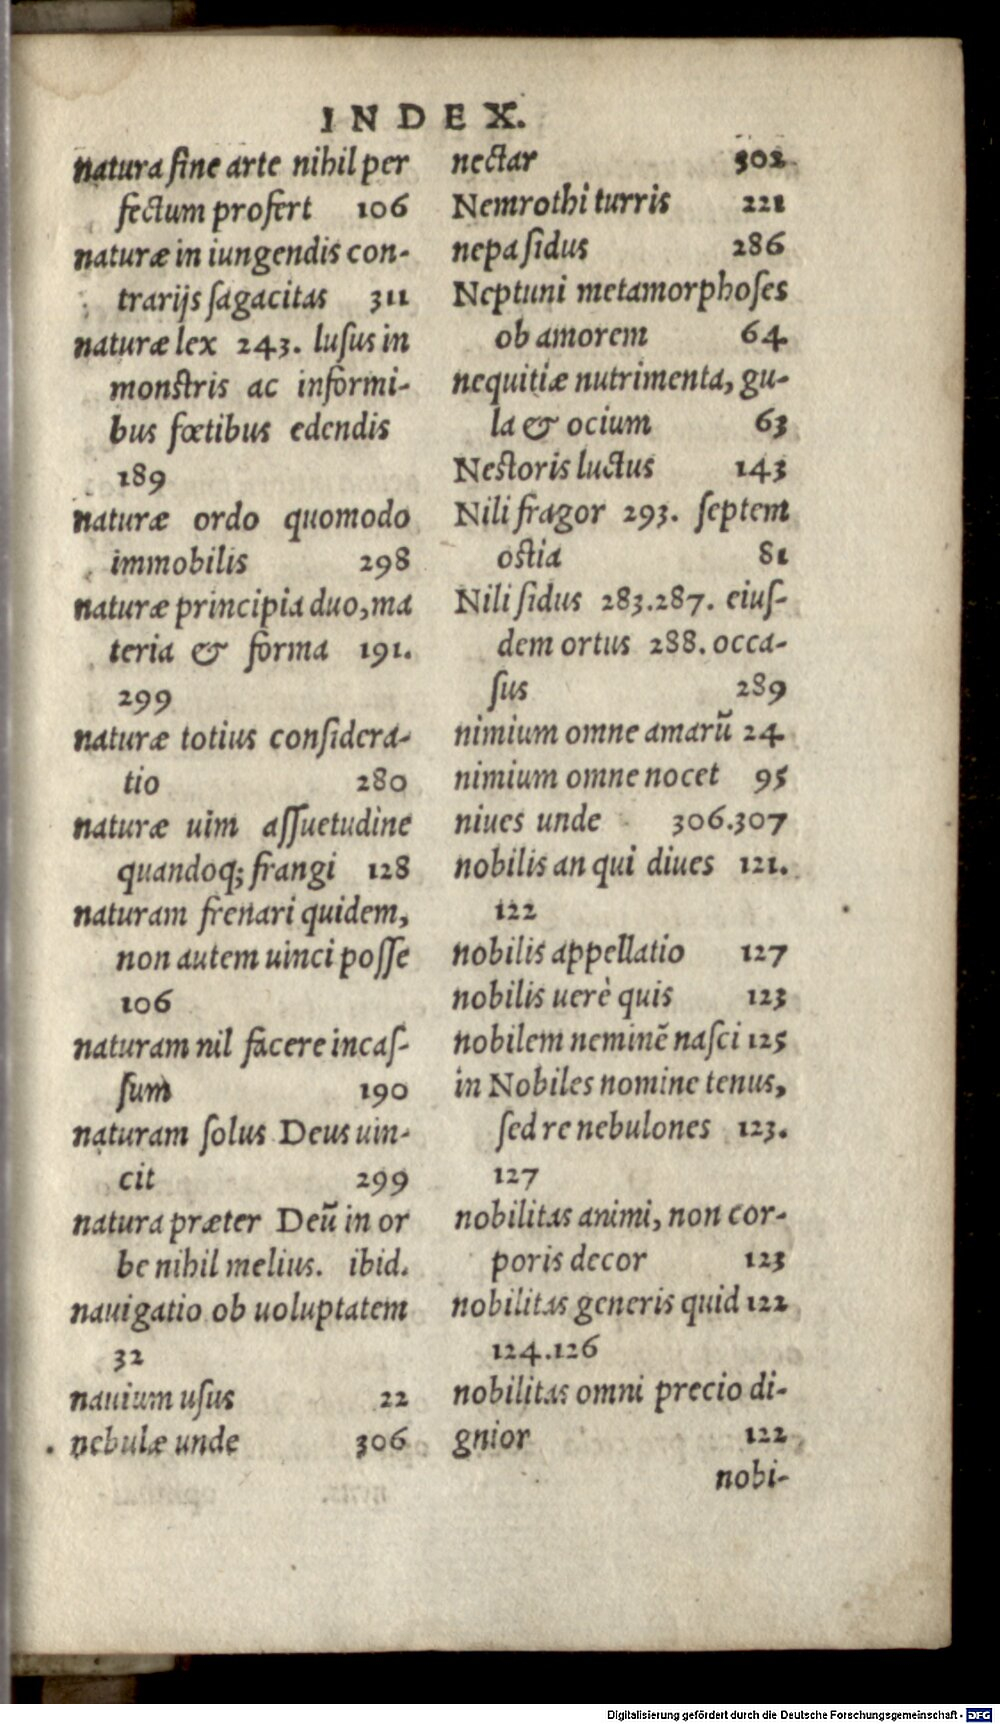 INDEX.
natura ſine arte nihil per
fectum profert 106
naturæ in iungendis con-
trarijs ſagacitas 311
naturæ lex 243. luſus in
monſtris ac informi-
bus fœtibus edendis
189
naturæ ordo quomodo
immobilis 298
naturæ principia duo, ma
teria & forma 191.
299
naturæ totius conſidera-
tio 280
naturæ uim aſſuetudine
quandoq; frangi 128
naturam frenari quidem,
non autem uinci poſſe
106
naturam nil facere incaſ-
ſum 190
naturam ſolus Deus uin-
cit 299
natura præter Deũ in or
be nihil melius. ibid.
nauigatio ob uoluptatem
32
nauium uſus 22
nebulæ unde 306
nectar 302
Nemrothi turris 221
nepa ſidus 286
Neptuni metamorphoſes
ob amorem 64
nequitiæ nutrimenta, gu-
la & ocium 63
Neſtoris luctus 143
Nili fragor 293. ſeptem
oſtia 81
Nili ſidus 283.287. eiuſ-
dem ortus 288. occa-
ſus 289
nimium omne amarũ 24
nimium omne nocet 95
niues unde 306.307
nobilis an qui diues 121.
122
nobilis appellatio 127
nobilis uerè quis 123
nobilem neminẽ naſci 125
in Nobiles nomine tenus,
ſed re nebulones 123.
127
nobilitas animi, non cor-
poris decor 123
nobilitas generis quid 122
124.126
nobilitas omni precio di-
gnior 122
nobi-
Digitalisierung gefördert durch die Deutsche Forschungsgemeinschaft - DFG